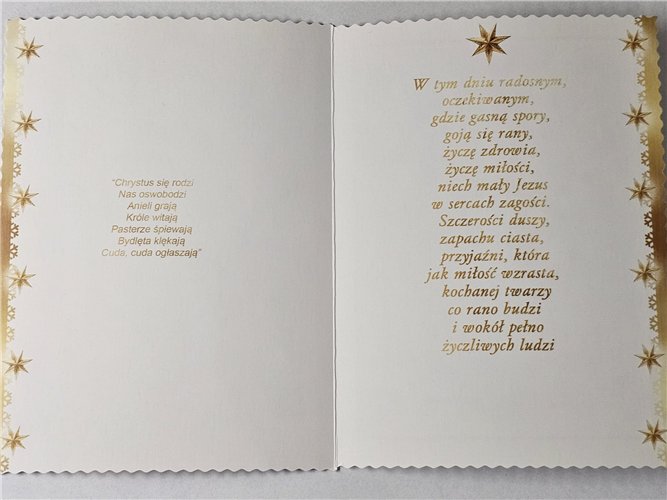 "Chrystus się rodzi
Nas oswobodzi
Anieli grają
Króle witają
Pasterze śpiewają
Bydlęta klękają
Cuda, cuda ogłaszają"
W tym dniu radosnym,
oczekiwanym,
gdzie gasną spory,
goją się rany,
życzę zdrowia,
życzę miłości,
niech mały Jezus
w sercach zagości.
Szczerości duszy,
zapachu ciasta,
przyjaźni, która
jak miłość wzrasta,
kochanej twarzy
co rano budzi
i wokół pełno
życzliwych ludzi